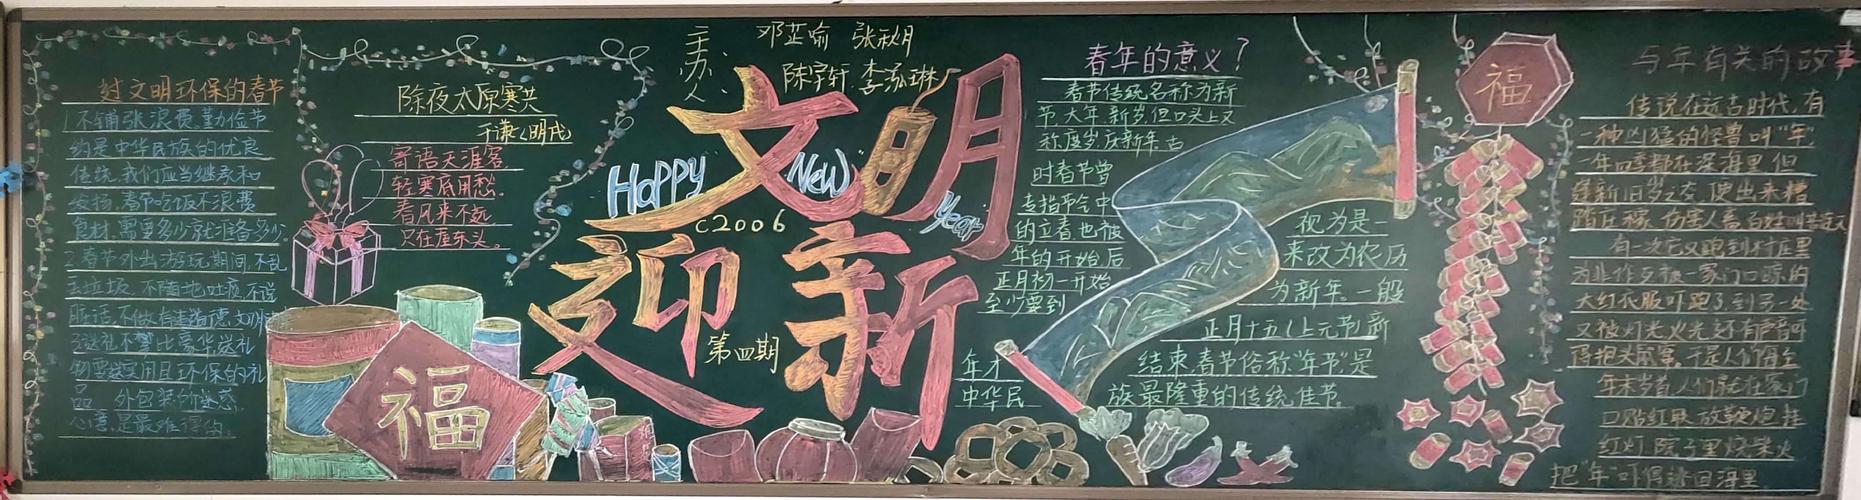 过文明环保的春节
1不铺张浪费,勤俭节
约是中华民族的优良
传统,我们应当继承和
发扬,春节吃饭不浪费
食材,需要多少就准备多少
2.春节外出游玩期间,不乱
丢垃圾,不随地吐痰,不说
脏话,不做有违道德,文明
3送礼不攀比豪华,送礼
物要实用且环保的礼
品,外包装
心意是最难得的
除夜太原寒甚
于谦<明代>
寄语天涯客,
轻寒底用愁.
春风来不远,
只在屋东头.
主办人
邓芷喻 张秋月
陈宇轩 李泓琳
文明
Happy New Year
c2006
迎新
第四期
福
春年的意义?
春节传统名称为新
节,大年,新岁,但口头上又
称度岁,庆新年,古
时春节曾
专指节令中
的立春,也被
视为是
年的开始,后
来改为农历
正月初一开始
为新年.一般
至少要到
正月十五(上元节)新
年才
结束,春节俗称"年节"是
中华民
族最隆重的传统佳节.
福
与年有关的故事
传说在远古时代,有
一种凶猛的怪兽叫"年",
一年四季都在深海里,但
新旧岁之交便出来糟
有一次它又跑到村庄里
为非作歹被一家门口晾的
大红衣服吓跑了,到另一处
又被灯光火光还有声音吓
得抱头鼠窜,于是人们每至
年末岁首,人们就在家门
口贴红联,放鞭炮,挂
红灯,院子里烧柴火
把"年"吓得逃回海里.